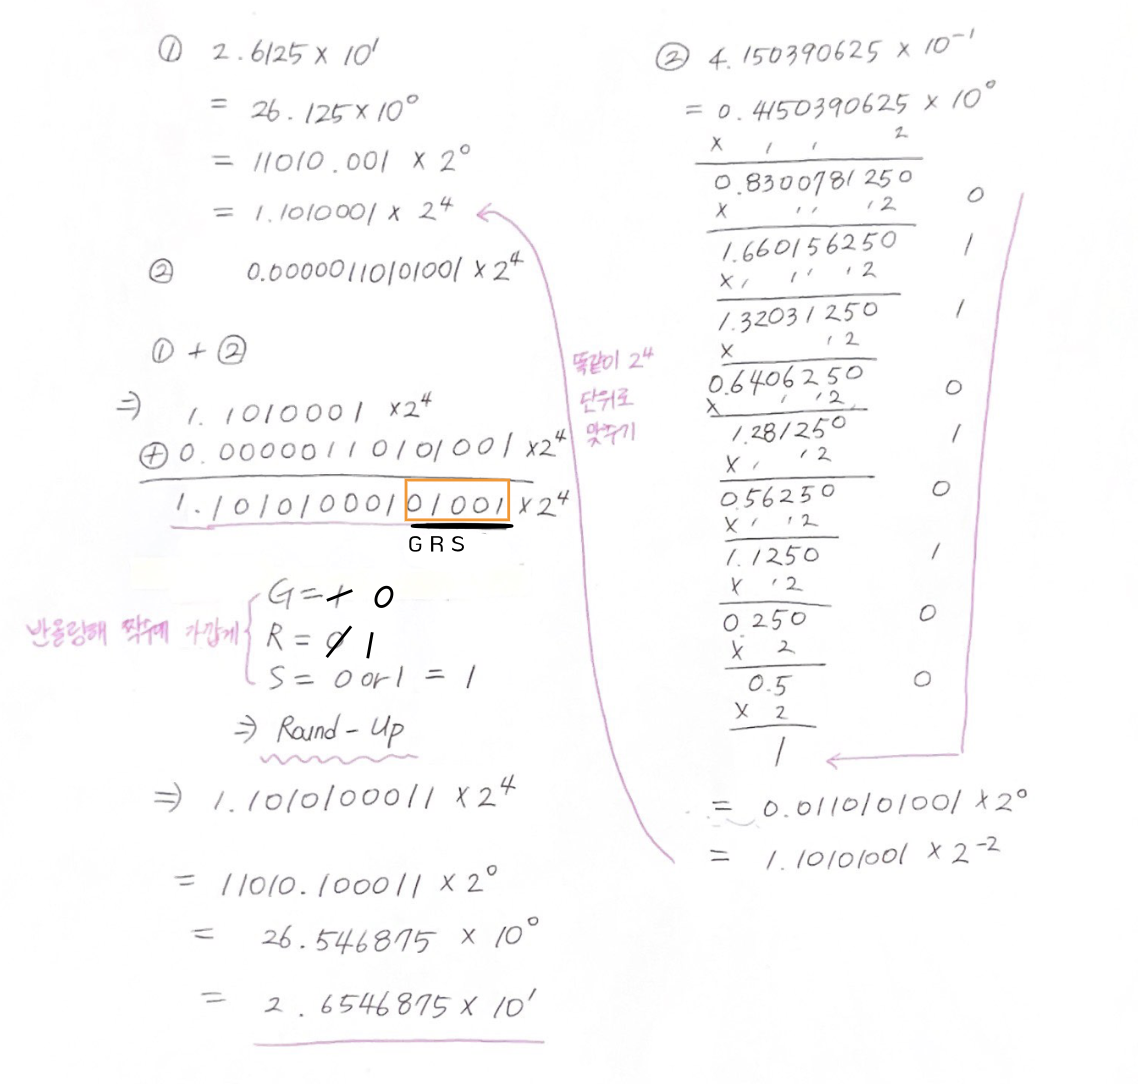 ① 2.6125 × 10¹
= 26.125 × 10⁰
= 11010.001 × 2⁰
= 1.1010001 × 2⁴
② 0.00000110101001 × 2⁴
① + ②
⇒ 1.1010001 ×2⁴
⊕ 0.00000110101001 ×2⁴
1.10101000101001 ×2⁴
G R S
G = 0
R = 1
S = 0 or 1 = 1
반올림해 짝수에 가깝게
⇒ Round-Up
⇒ 1.1010100011 × 2⁴
= 11010.100011 × 2⁰
= 26.546875 × 10⁰
= 2.6546875 × 10¹
똑같이 2⁴
단위로
맞추기
② 4.150390625 × 10⁻¹
= 0.4150390625 × 10⁰
× 2
0.8300781250 0
× 2
1.660156250 1
× 2
1.32031250 1
× 2
0.6406250 0
× 2
1.281250 1
× 2
0.56250 0
× 2
1.1250 1
× 2
0.250 0
× 2
0.5 0
× 2
1
= 0.0110101001 × 2⁰
= 1.10101001 × 2⁻²